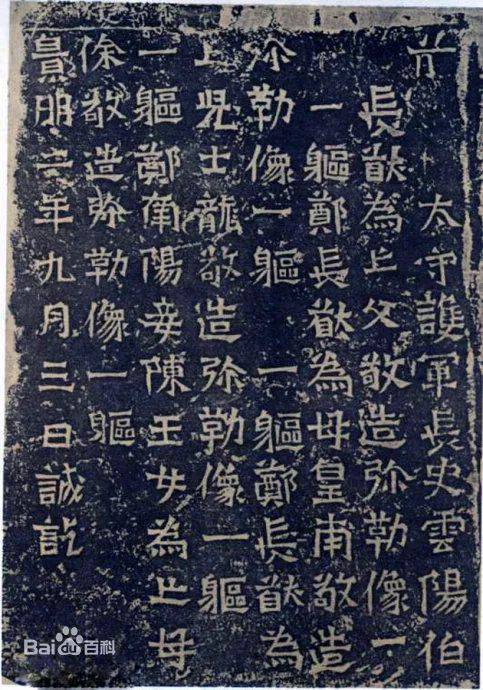 太守護軍長史雲陽伯
長猷為亡父敬造弥勒像一
一軀鄭長猷為母皇甫敬造
弥勒像一軀 一軀鄭長猷為
亡児士龍敬造弥勒像一軀
一軀鄭南陽妾陳玉女為亡母
徐敬造弥勒像一軀
景明二年九月三日誠訖
Bai百科